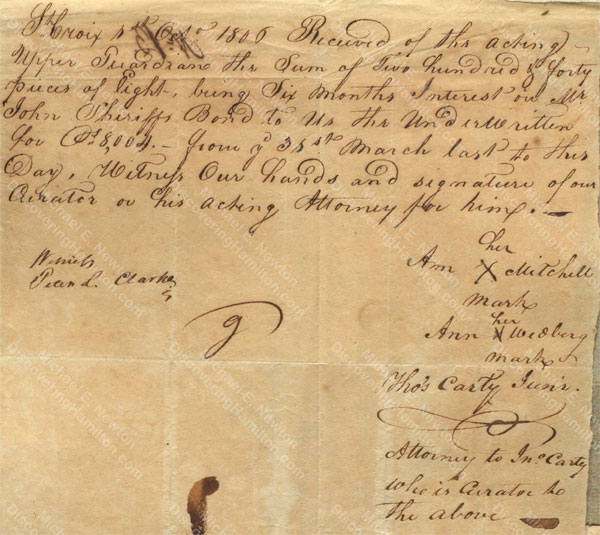 St Croix 1st Octo. 1806 Received of the acting
Upper Guardians the Sum of Two hundred & forty
pieces of Eight, being Six Months Interest on Mr
John Sheriffs Bond to Us the UnderWritten
for Ps 8,004.— from ye 31st March last to this
Day, Witness Our hands and signature of our
Curator or his acting Attorney for him.—
her
Ann X Mitchell
mark
her
Ann X Wedberg
mark
Witness
Peter L. Clarke
Tho's Carty Jun'r.
Attorney to Jno. Carty
who is Curator to
the above
Michael E. Newton
DiscoveringHamilton.com